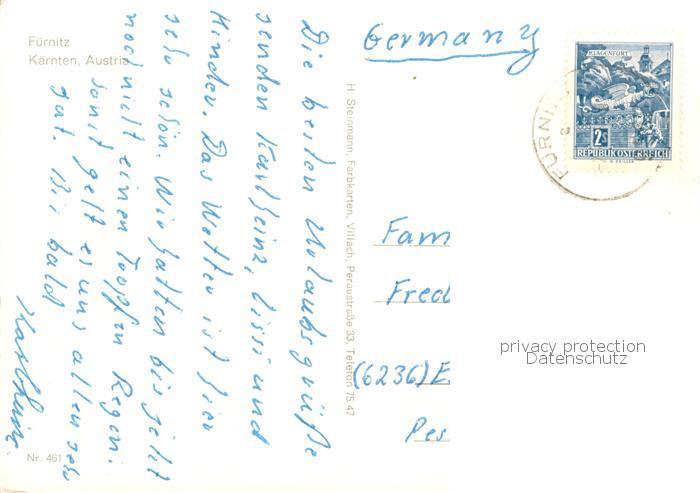 Fürnitz
Kärnten, Austria
Die besten Urlaubsgrüße
senden Karlheinz, Lissi und
Kinder. Das Wetter ist hier
sehr schön. Wir hatten bis jetzt
noch nicht einen Tropfen Regen.
Sonst geht es uns allen sehr
gut. Bis bald
Karlheinz
Nr. 461
H. Steinmann, Farbkarten, Villach, Peraustraße 33, Telefon 75 47
Germany
KLAGENFURT
2S
REPUBLIK OSTERREICH
FÜRNI
Fam
Fred
(6236) E
Pes
privacy protection
Datenschutz